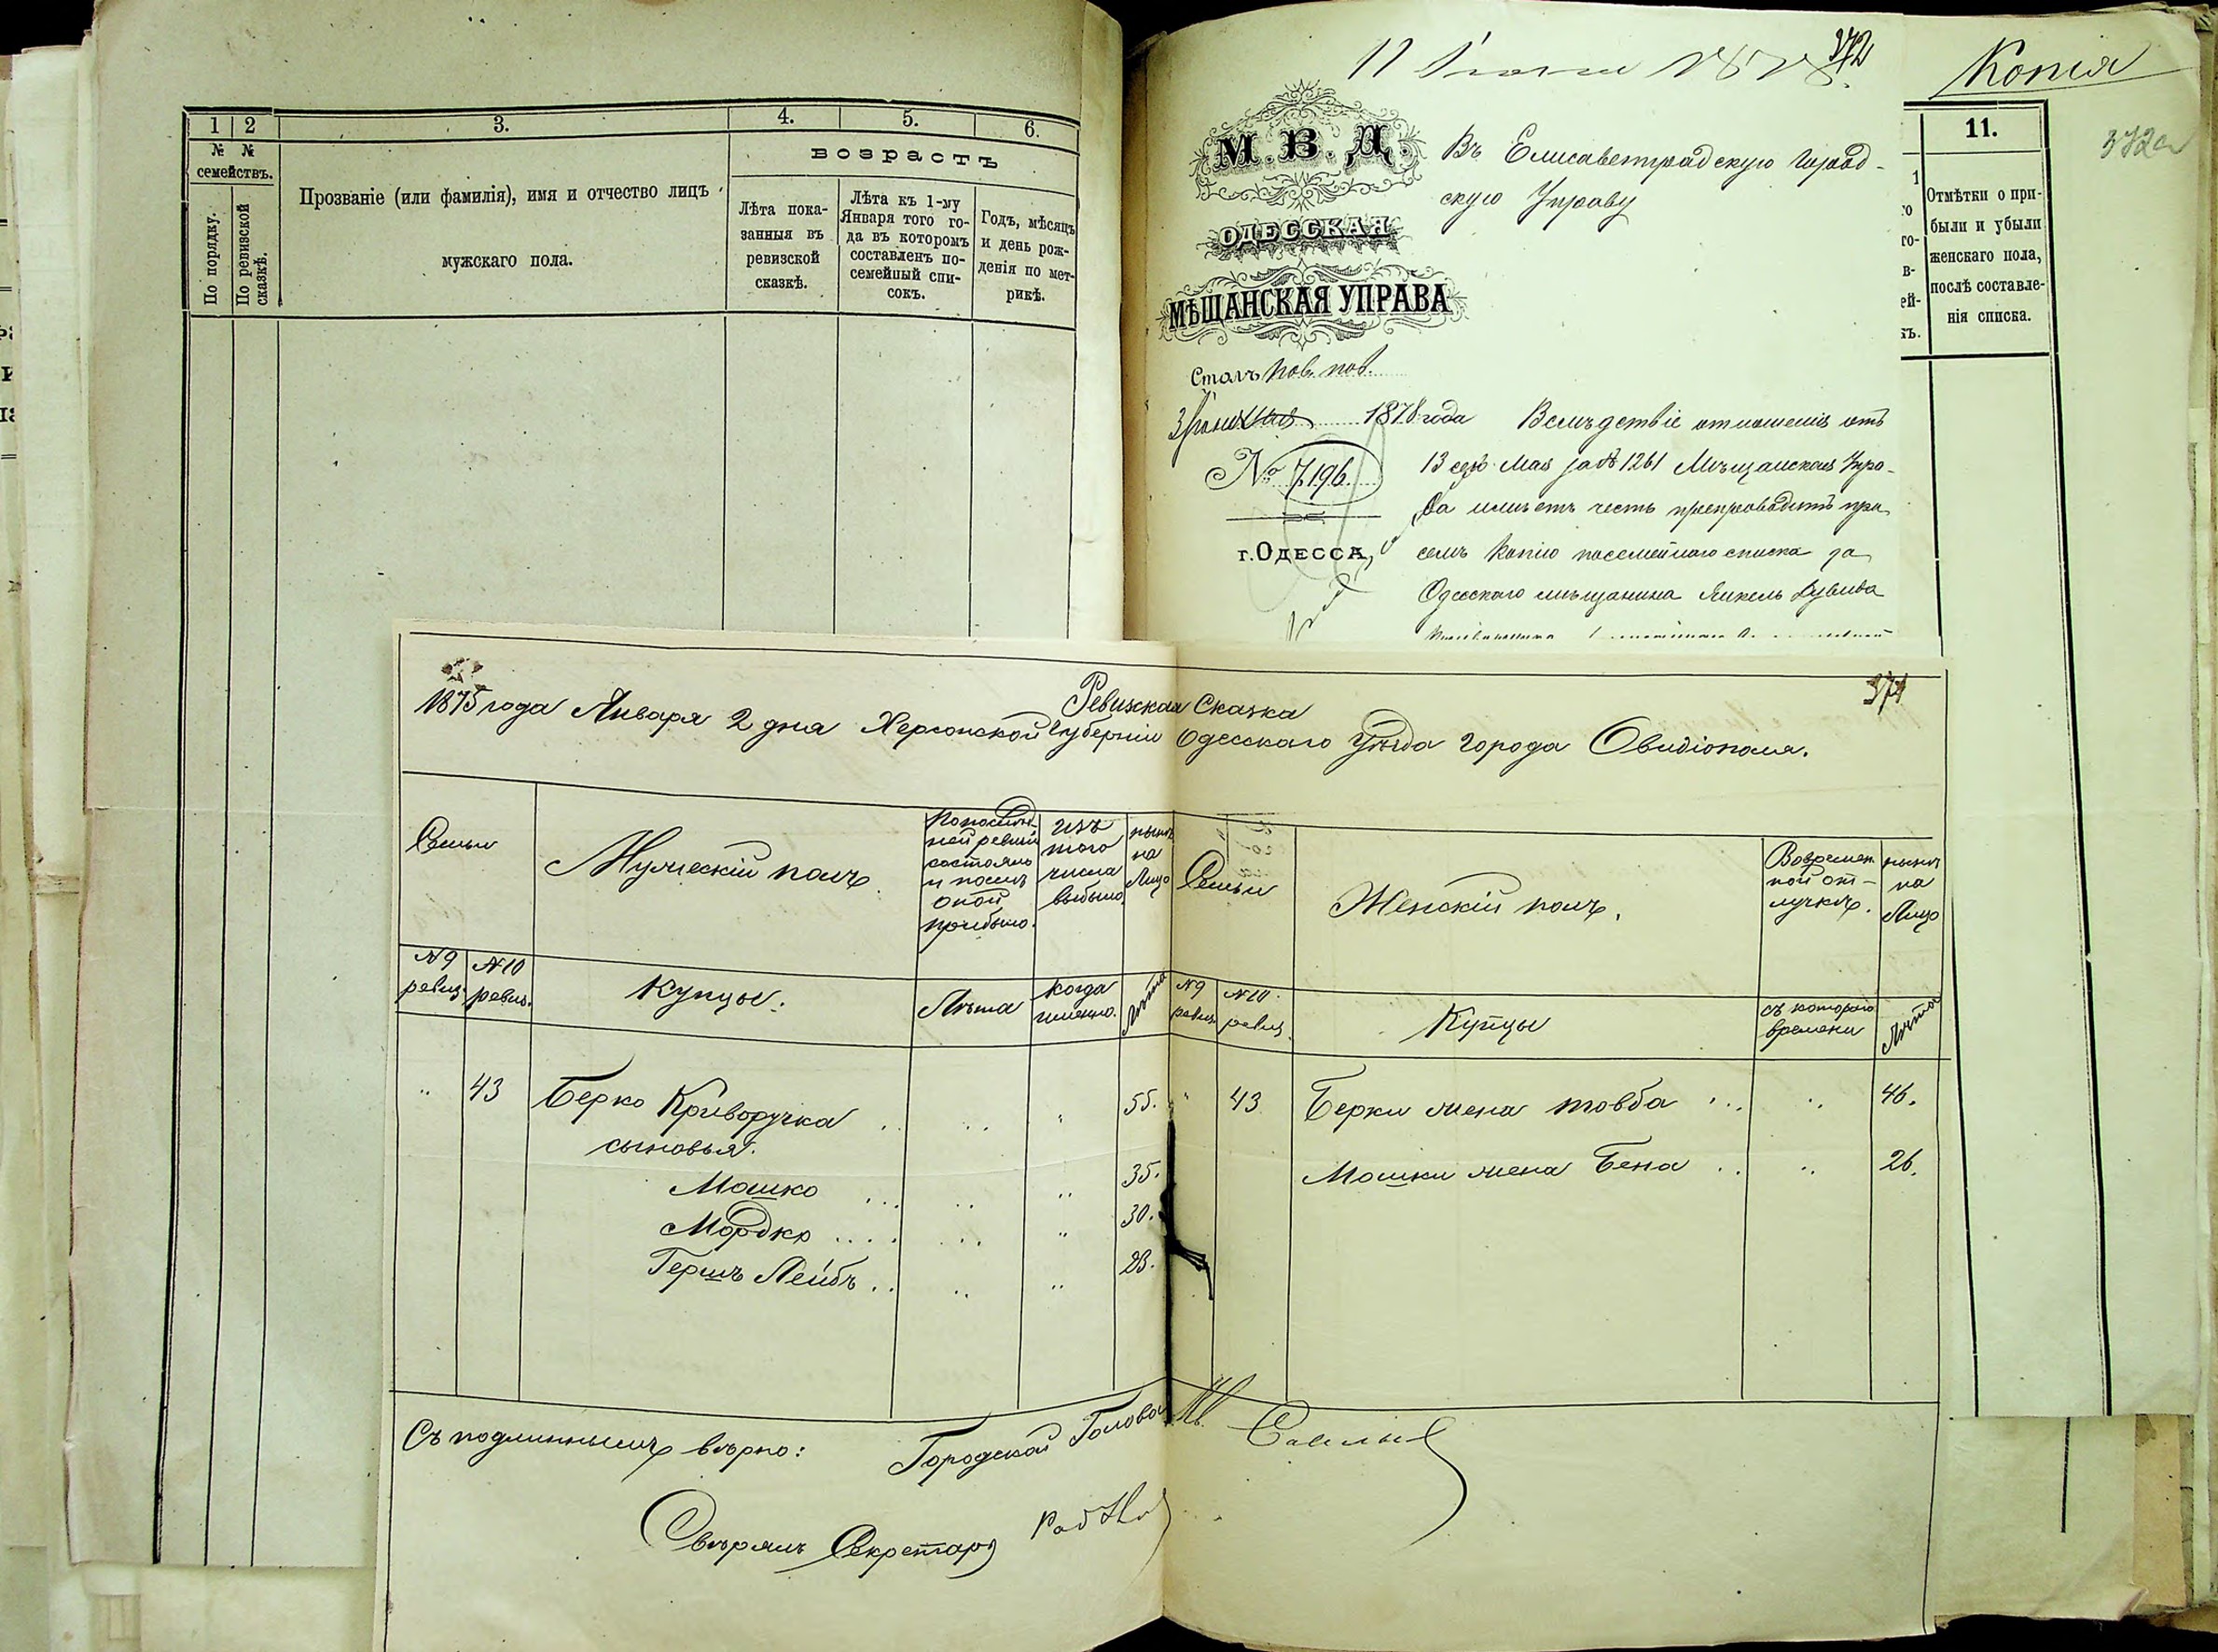 1 2 3. 4. 5. 6.
№ №
семействъ.
По порядку.
По ревизской сказкѣ.
Прозваніе (или фамилія), имя и отчество лицъ
мужскаго пола.
возрастъ
Лѣта пока-
занныя въ
ревизской
сказкѣ.
Лѣта къ 1-му
Января того го-
да въ которомъ
составленъ по-
семейный спи-
сокъ.
Годъ, мѣсяцъ
и день рож-
денія по мет-
рикѣ.
372
М. В. Д.
ОДЕССКАЯ
МѢЩАНСКАЯ УПРАВА
Столъ
1878 года
№ 7196.
г. ОДЕССА,
Въ Елисаветградскую Город-
скую Управу
Вслѣдствіе отношенія отъ
13 сего Мая за № 1261 Мѣщанская Упра-
ва имѣетъ честь препроводить при
семъ копію посемейнаго списка за
Одесскаго мѣщанина
Копія
372а
11.
Отмѣтки о при-
были и убыли
женскаго пола,
послѣ составле-
нія списка.
371
Ревизская Сказка
1875 года Января 2 дня Херсонской Губерніи Одесскаго Уѣзда города Овидіополя.
Семьи
Мужескій полъ
По послѣд-
ней ревизіи
состояло
и послѣ
оной
прибыло.
Изъ
того
числа
выбыло
нынѣ
на
Лицо
Семьи
Женскій полъ.
Во времен
ной от-
лучкѣ.
нынѣ
на
Лицо
№ 9
ревиз.
№ 10
ревиз.
Купцы.
Лѣта
когда
именно.
Лѣта
№ 9
ревиз.
№ 10.
ревиз.
Купцы
съ котораго
времени
Лѣта
" 43 Берко Криворучка .. .. " 55. " 43 Берки жена Товба ... .. 46.
сыновья:
Мошко ... .. " 35. Мошки жена Бена .. .. 26.
Мордко .... ... " 30.
Гершъ Лейбъ .. .. " 23.
Съ подлиннымъ вѣрно: Городской Голова
Свѣрялъ Секретарь